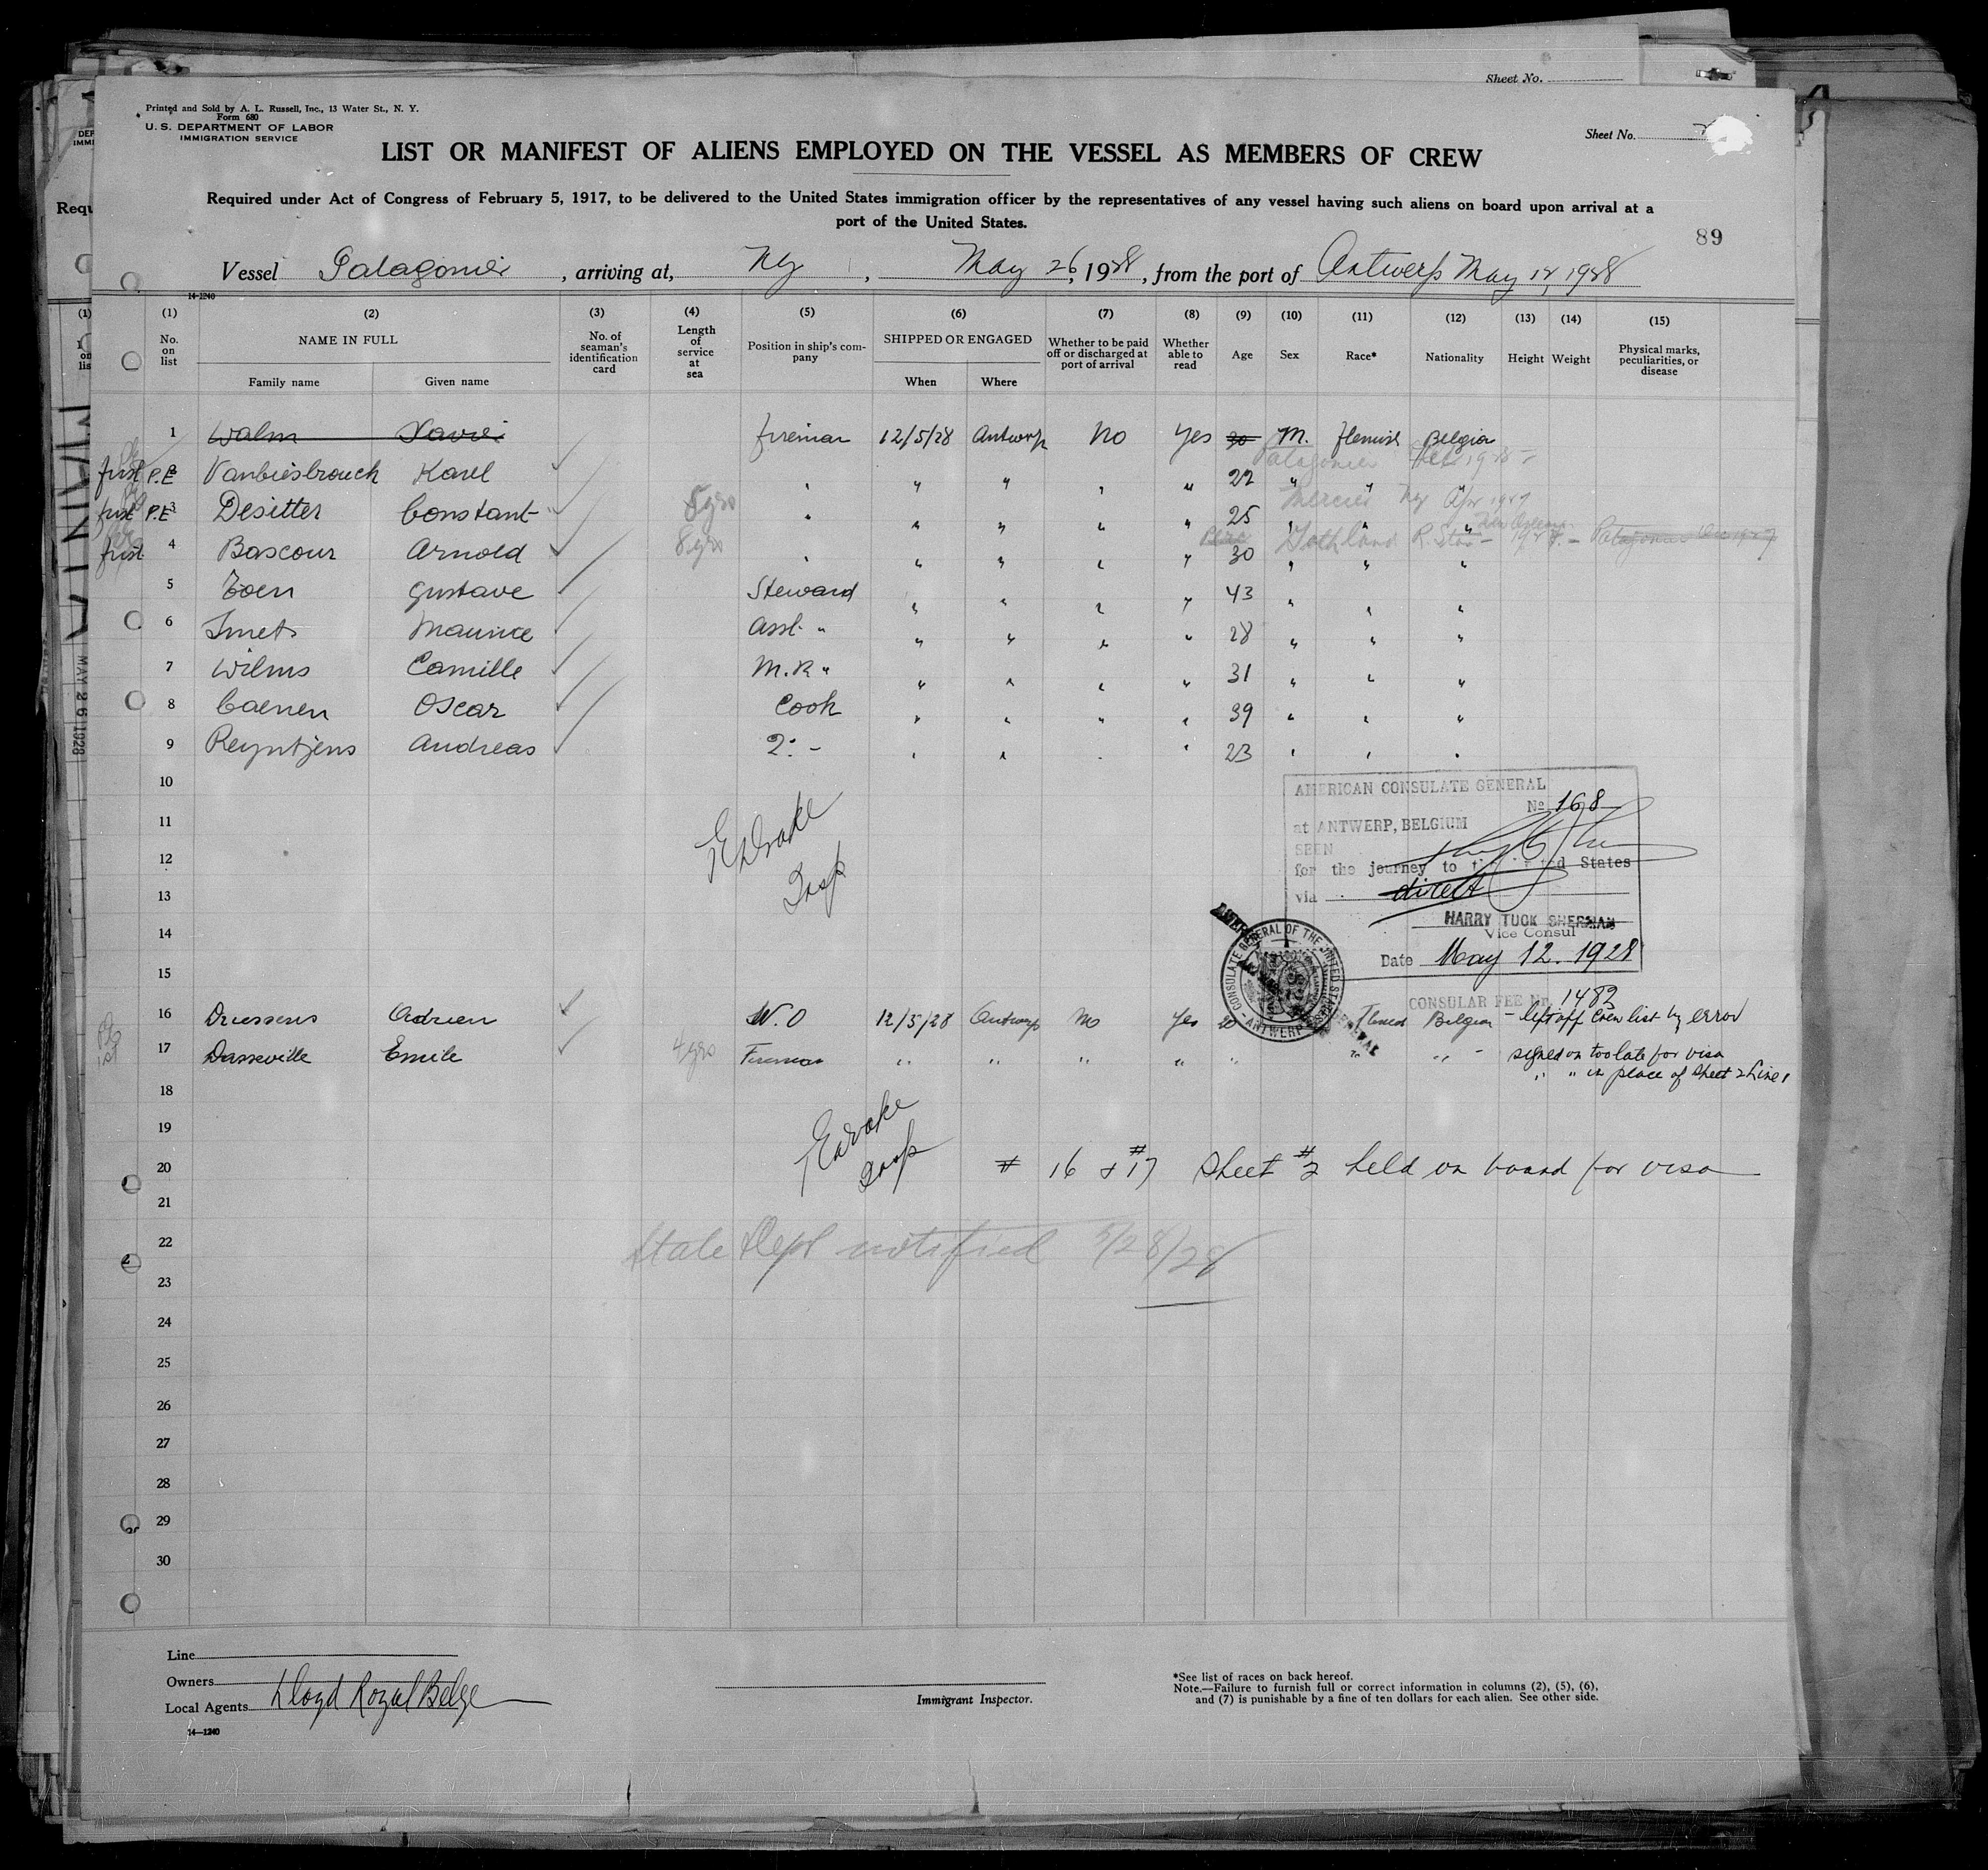 Sheet No.
Printed and Sold by A. L. Russell, Inc., 13 Water St., N. Y.
Form 680
U. S. DEPARTMENT OF LABOR
IMMIGRATION SERVICE
Sheet No.
LIST OR MANIFEST OF ALIENS EMPLOYED ON THE VESSEL AS MEMBERS OF CREW
Required under Act of Congress of February 5, 1917, to be delivered to the United States immigration officer by the representatives of any vessel having such aliens on board upon arrival at a
port of the United States.
89
Vessel Patagonier, arriving at, NY, May 26, 1928, from the port of Antwerp May 12, 1928
14-1240
(1) (2) (3) (4) (5) (6) (7) (8) (9) (10) (11) (12) (13) (14) (15)
No. on list NAME IN FULL Family name Given name No. of seaman's identification card Length of service at sea Position in ship's company SHIPPED OR ENGAGED When Where Whether to be paid off or discharged at port of arrival Whether able to read Age Sex Race* Nationality Height Weight Physical marks, peculiarities, or disease
1 Walm fireman 12/5/28 Antwerp No Yes 30 M. flemish Belgian
Patagonier
first P.E 2 Vanbiesbrouck Karel " " " " 22 " " "
Mercier NY Apr 1927
first P.E 3 Desitter Constant 5yrs " " " " " 25 " " "
Gothland R. Star
first 4 Bascour Arnold 8yrs " " " " " 30 " " "
5 Toen Gustave Steward " " " " 43 " " "
6 Smets Maurice asst. " " " " " 28 " " "
7 Wilms Camille M.R " " " " " 31 " " "
8 Caenen Oscar Cook " " " " 39 " " "
9 Reyntjens Andreas 2: - " " " " 23 " " "
10
11
12
13
14
15
E Drake
Insp
AMERICAN CONSULATE GENERAL
No 168
at ANTWERP, BELGIUM
SEEN
for the journey to the United States
via direct
HARRY TUCK SHERMAN
Vice Consul
Date May 12. 1928
CONSULATE GENERAL OF THE UNITED STATES ANTWERP
CONSULAR FEE Nr. 1482
16 Driessens Adrien W.O 12/5/28 Antwerp No Yes 20 Flemish Belgian - left off crew list by error
17 Dasseville Emile 4yrs Fireman " " " " " " " - signed on too late for visa
" " in place of Sheet 2 Line 1
18
19
E Drake
Insp
20 # 16 & #17 Sheet #2 held on board for visa
21
22 State Dept notified 5/28/28
23
24
25
26
27
28
29
30
Line
Owners
Local Agents Lloyd Royal Belge
14—1240
Immigrant Inspector.
*See list of races on back hereof.
Note.—Failure to furnish full or correct information in columns (2), (5), (6),
and (7) is punishable by a fine of ten dollars for each alien. See other side.
MAY 26 1928